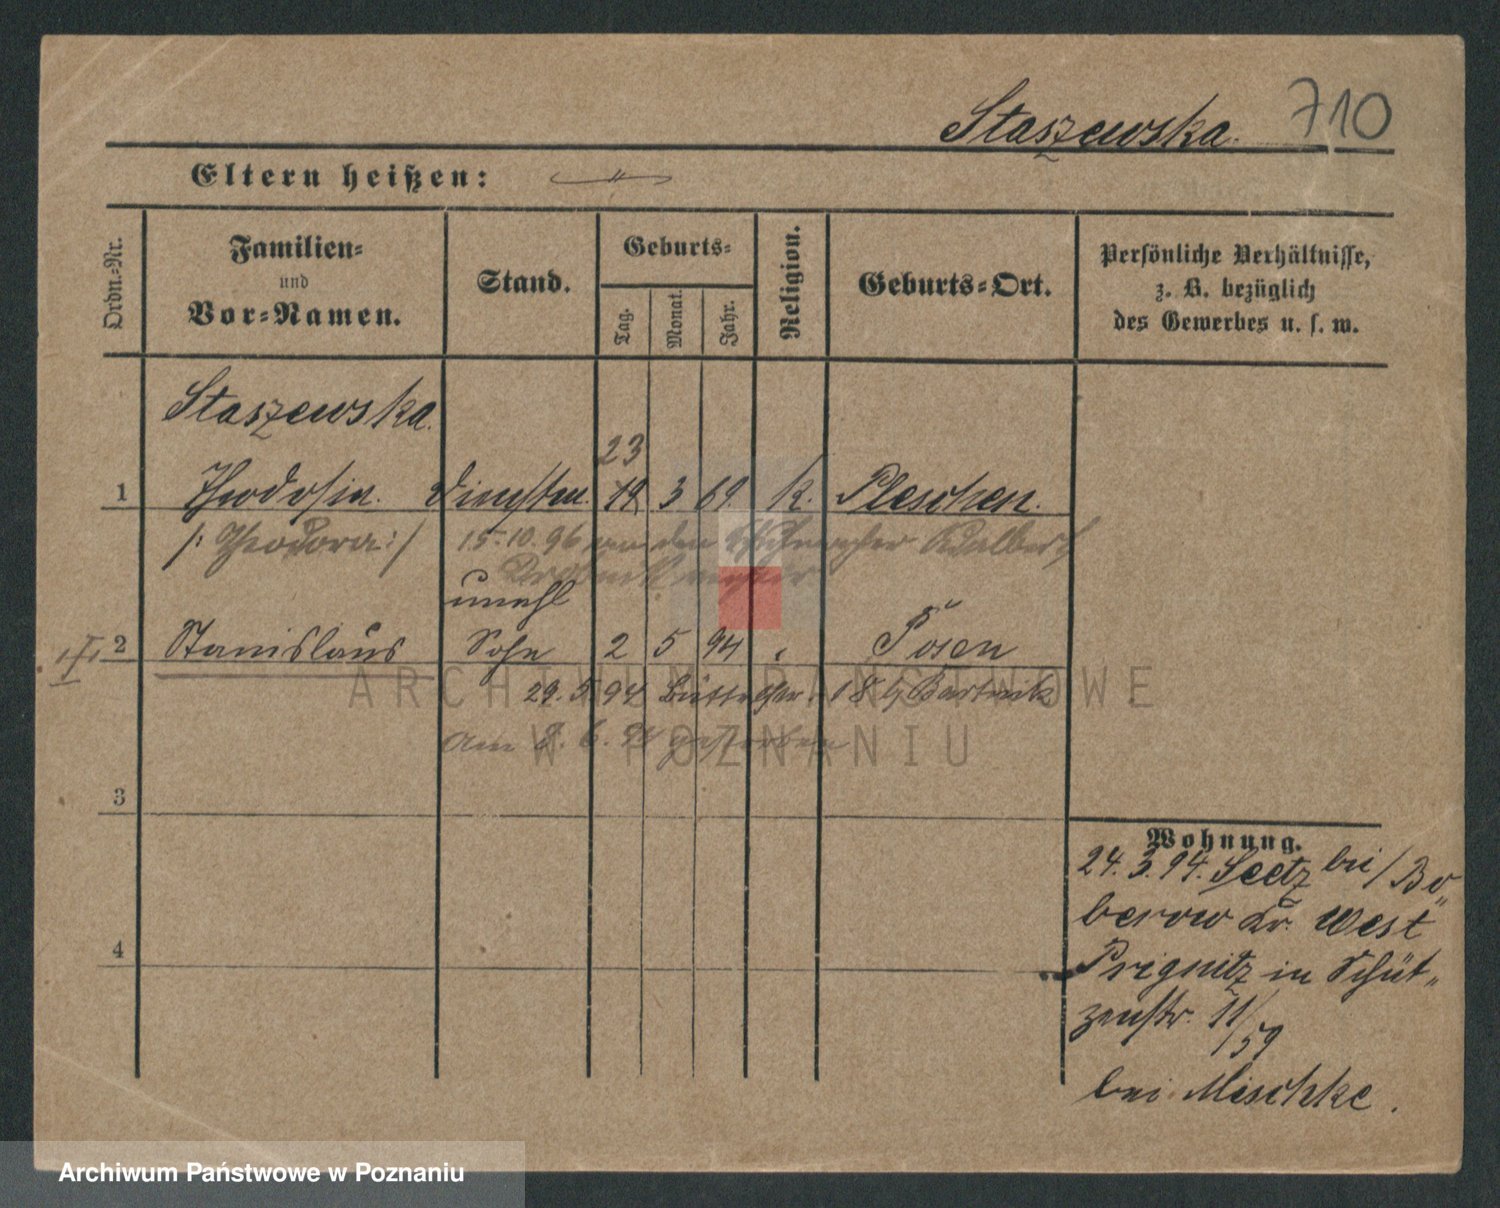 Staszewska. 710
Eltern heißen: —"—
Ordn.-Nr.
Familien-
und
Vor-Namen.
Stand.
Geburts-
Tag.
Monat.
Jahr.
Religion.
Geburts-Ort.
Persönliche Verhältnisse,
z. B. bezüglich
des Gewerbes u. s. w.
Staszewska.
23
1 Theodosia. 19 3 69. k. Pleschen.
/: Theodora :/ 15.10.96 an den Adalbert
unehl
2 Stanislaus Sohn 2 5 94 " Posen
29.5.94 18 b/ Bartnik
am 8.6.94 gestorben
ARCHIWUM PAŃSTWOWE
W POZNANIU
3
4
Wohnung.
24.3.94. Seetz bei/Bo„
berow Kr. West
Prignitz in Schüt„
zenstr. 11/
/59
bei Mischke.
Archiwum Państwowe w Poznaniu